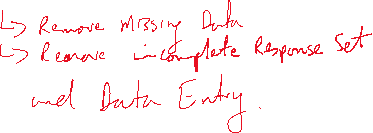 ↳ Remove Missing Data
↳ Remove incomplete Response Set
and Data Entry.